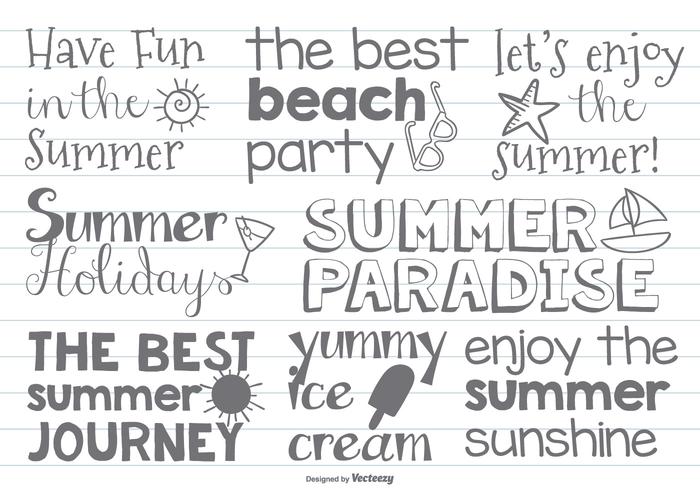 Have Fun
in the
Summer
the best
beach
party
let's enjoy
the
summer!
Summer
Holidays
SUMMER
PARADISE
THE BEST
summer
JOURNEY
yummy
ice
cream
enjoy the
summer
sunshine
Designed by Vecteezy